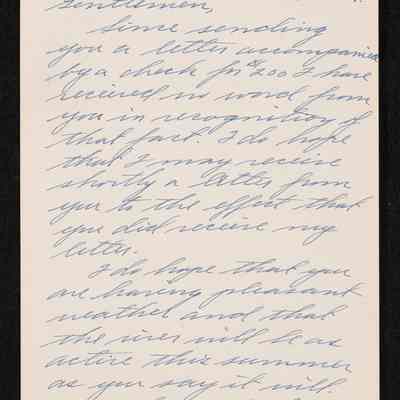 Gentlemen,
Since sending
you a letter accompanied
by a check for $200 I have
received no word from
you in recognition of
that fact. I do hope
that I may receive
shortly a letter from
you to the effect that
you did receive my
letter.
I do hope that you
are having pleasant
weather and that
the river will be as
active this summer
as you say it will.